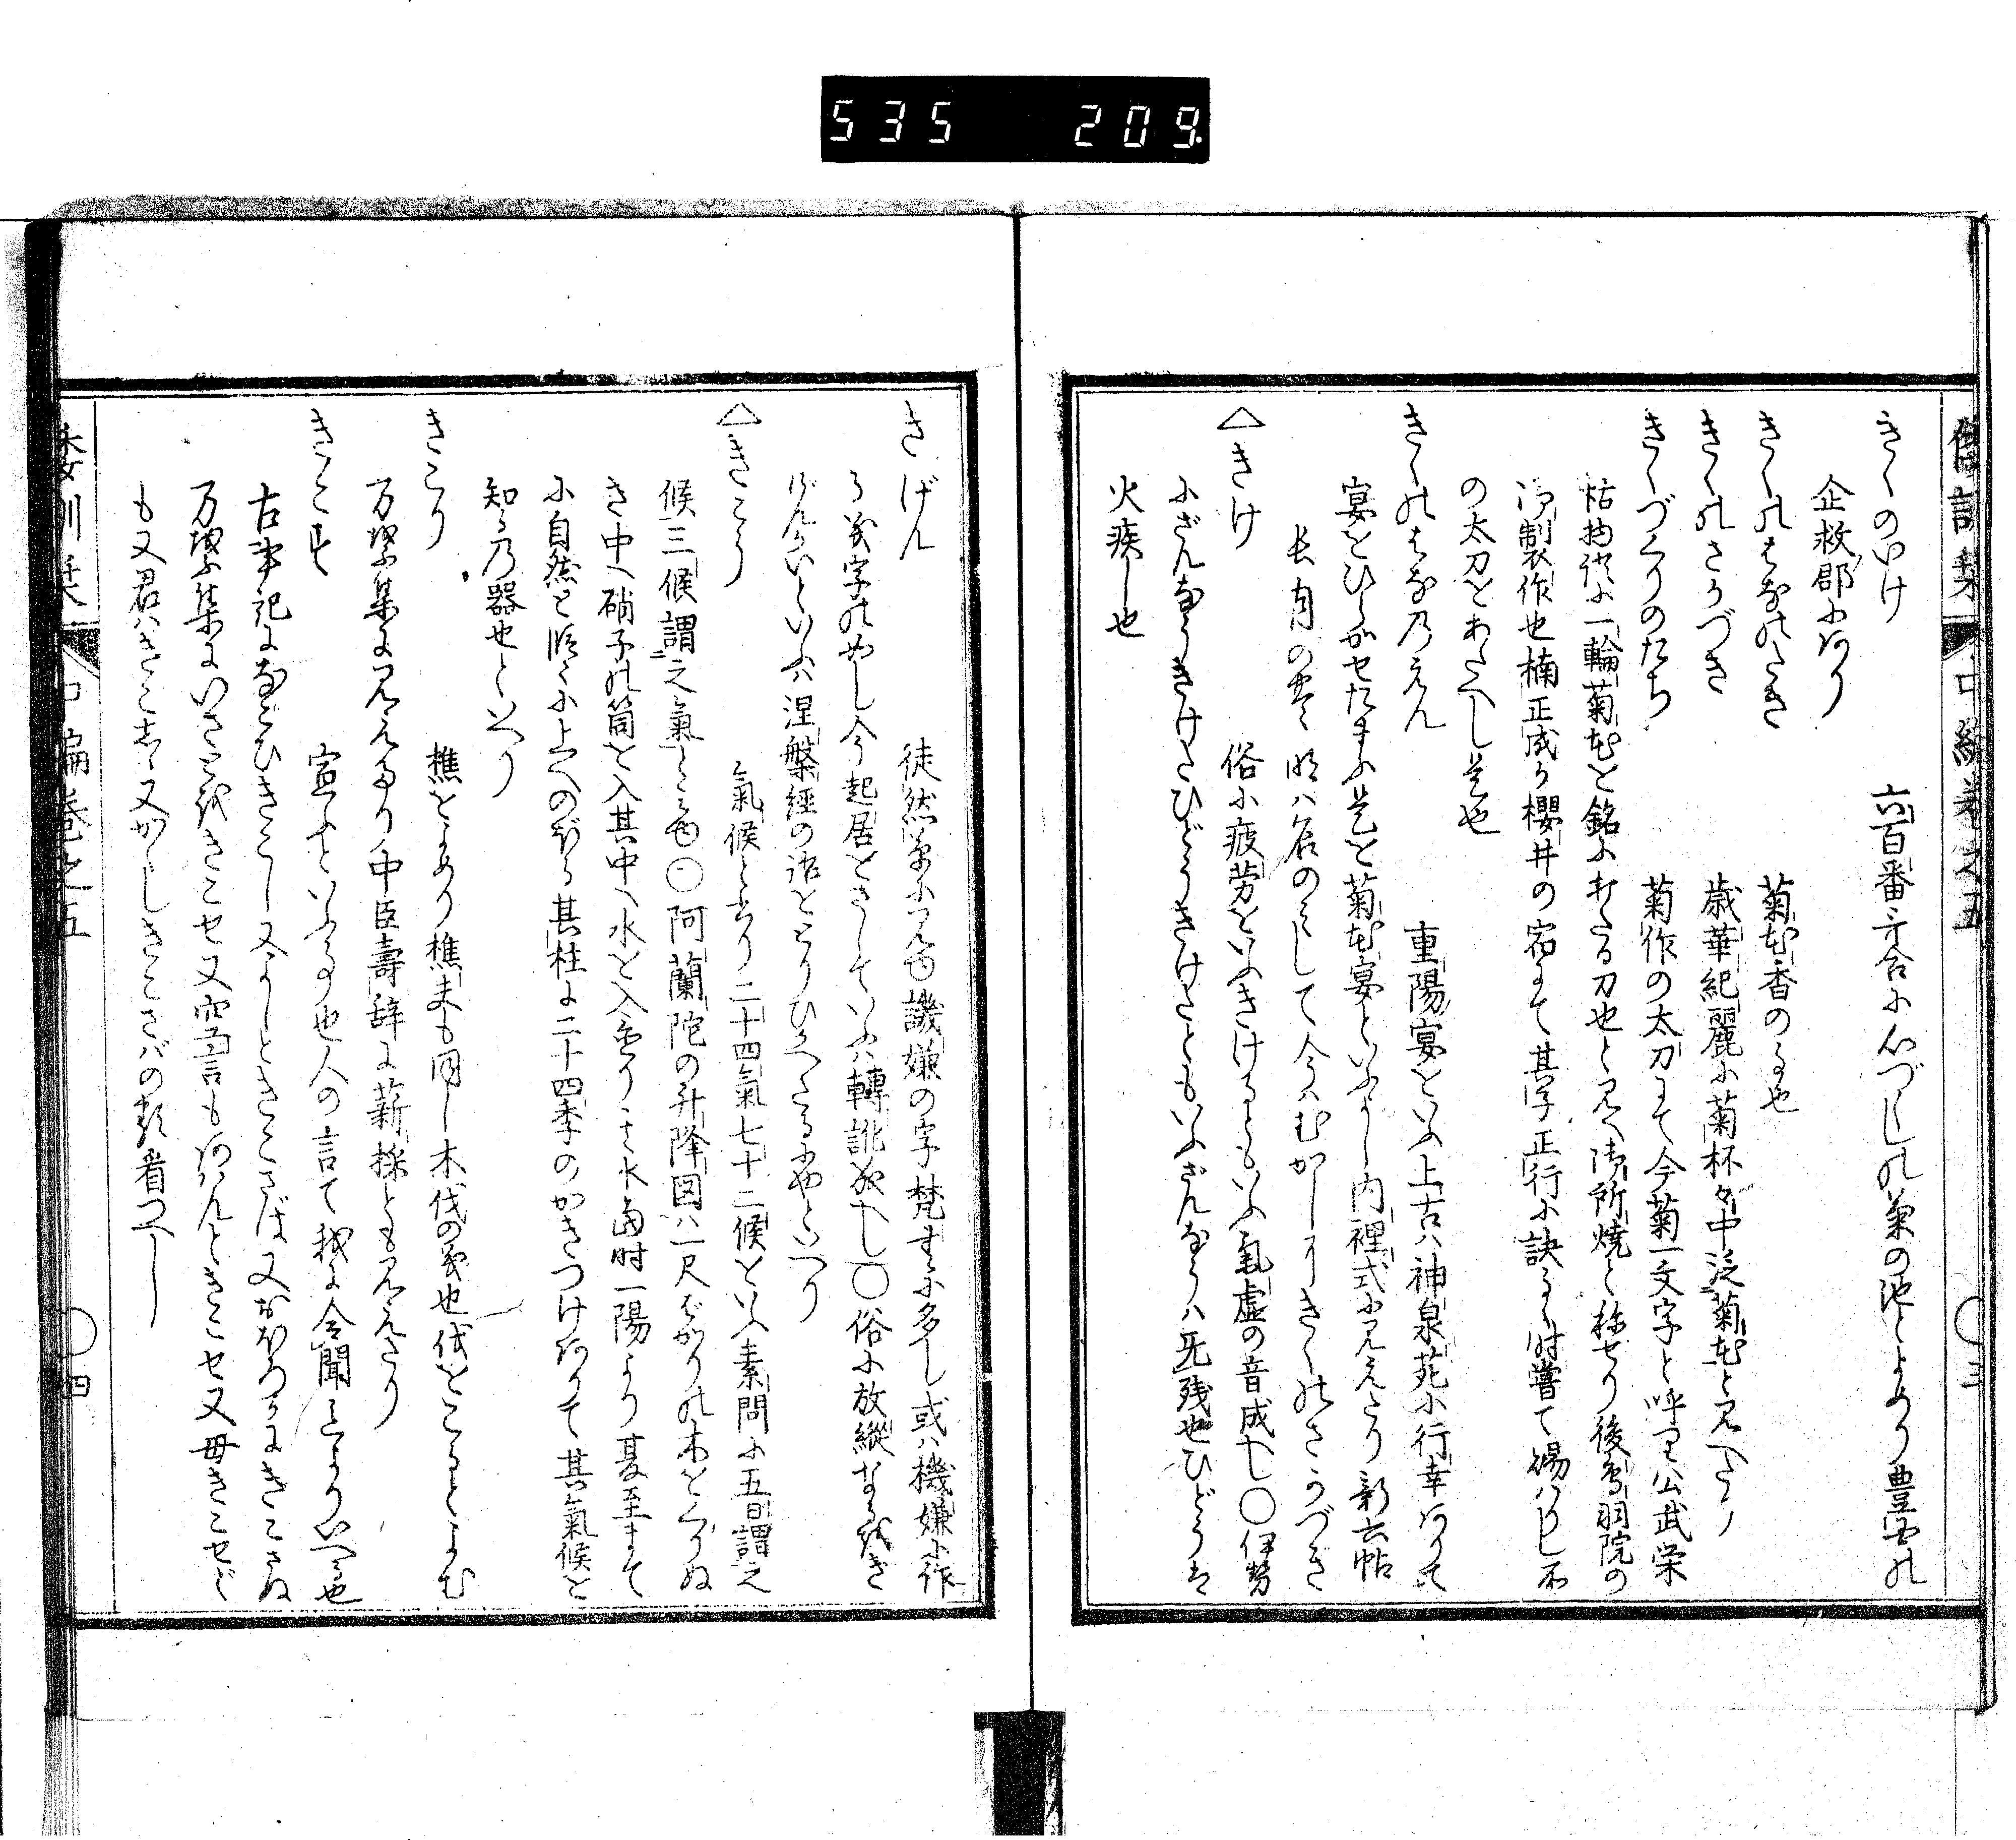 535 209
倭訓栞 中編巻之五 ○三
きくのいけ 六百番哥合に心づくしの菊の池とよめり豊国の
企救郡にあり
きくのはなのき 菊花香の事也
きくのさかづき 歳華紀麗に菊杯中泛菊花と見へたり
きくづくりのたち 菊作の太刀にて今菊一文字と呼り公武栄
枯抄に一輪菊花を銘に打たる刀也と見へ御所焼と称せり後鳥羽院の
御製作也楠正成か櫻井の宿にて其子正行に訣るゝ時嘗て賜はりし
の太刀をあたへし是也
きくのはな乃えん 重陽宴をいふ上古ハ神泉苑に行幸ありて
宴をひらかせたまふ是を菊花宴といふよし内裡式に見えたり新六帖
長月の 明ハ名のミして今ハむかしにきくのさかづき
△きけ 俗に疲労をいふきけるともいふ氣虚の音成へし○伊勢
にざんなうきけたひどうきけたともいふざんなうハ残也ひどうは
火疾し也
きげん 徒然草に見ゆ譏嫌の字梵書に多し或ハ機嫌に作
る義字のやし今起居をさしていふハ轉訛成へし○俗に放縦なるをき
げんかいといふハ涅槃經の語をとりひがへたるにやといへり
△きこう 氣候と書り二十四氣七十二候をいふ素問に五日謂之
候三候謂之氣と見ゆ○阿蘭陀の升降図ハ一尺ばかりの木をくりぬ
き中へ硝子の筒を入其中へ水を入置り其水冬時一陽より夏至まて
に自然と順々に上へのぼる其柱に二十四季のかきつけありて其氣候を
知る乃器也といへり
きこり 樵をよめり樵夫も同し木伐の義也伐をこるとよむ
万葉集に見えたり中臣壽辞に薪採とも見えたり
きこす 宣ふといふ事也人の言て我に令聞るよりいへる也
古事記になこひきこし又よしときこさば又おほろかにきこさぬ
万葉集にいさとをきこせ又空言もあはんときこせ又母きこせど
も又君ハきこしゝ又かくしきこさバの類看つへし
倭訓栞 中編巻之五 ○四